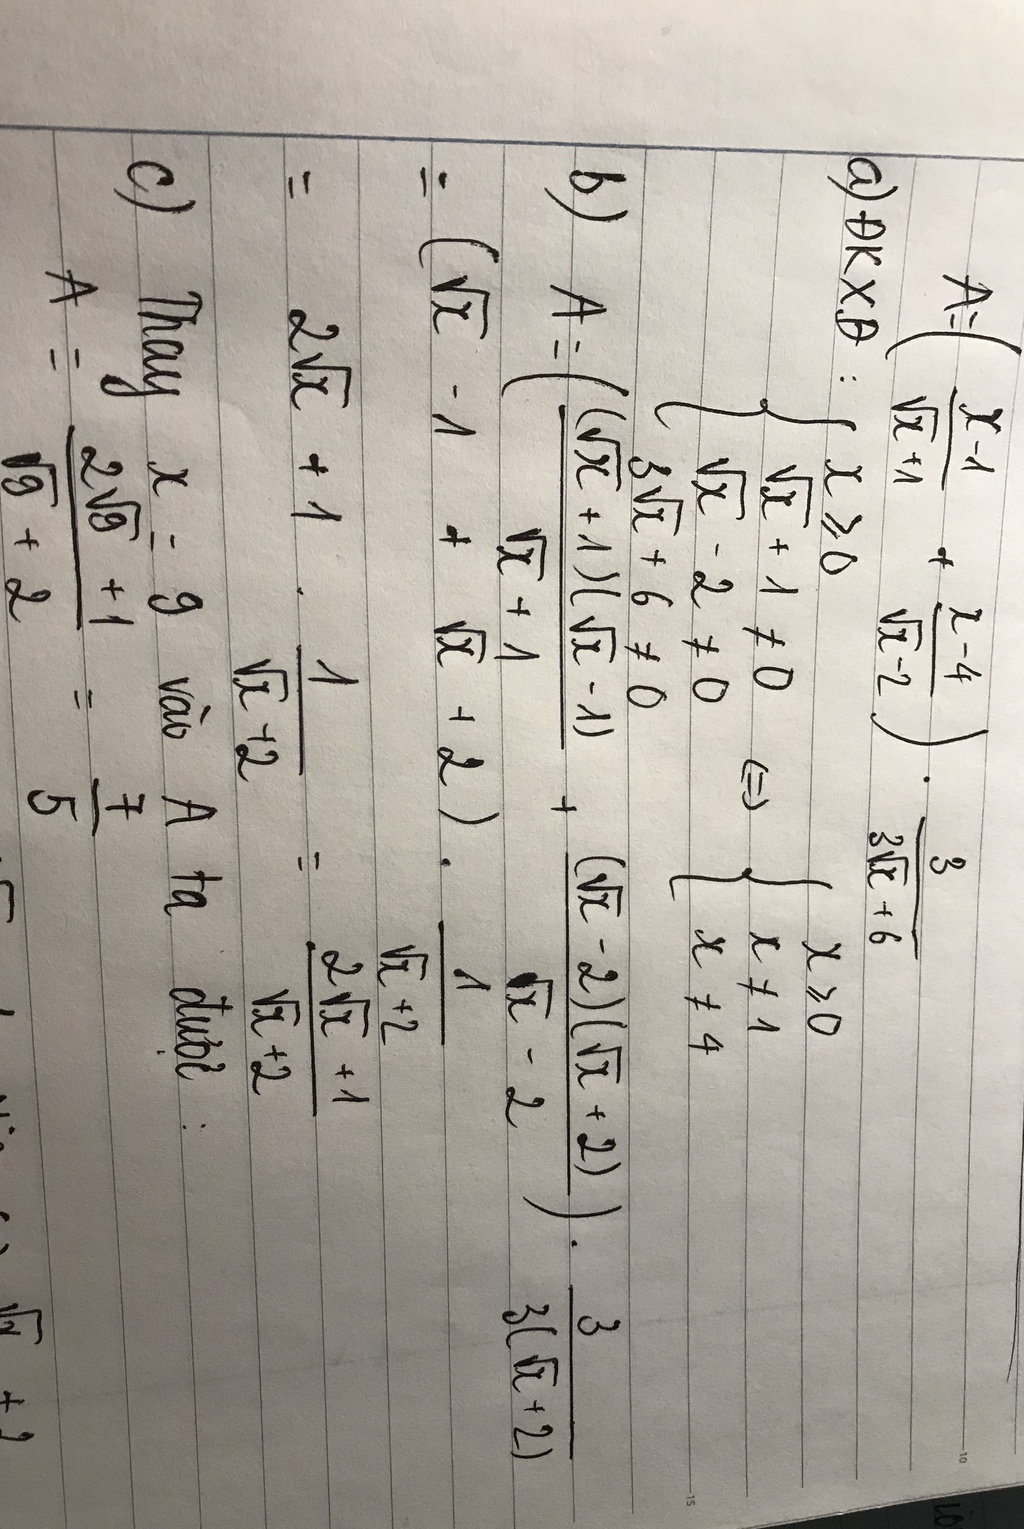 A = ( \frac{x-1}{\sqrt{x}+1} + \frac{x-4}{\sqrt{x}-2} ) . \frac{3}{3\sqrt{x}+6}
a) ĐKXĐ : { x ≥ 0
√x + 1 ≠ 0
√x - 2 ≠ 0
3√x + 6 ≠ 0
⇔ { x ≥ 0
x ≠ 1
x ≠ 4
b) A = ( \frac{(\sqrt{x}+1)(\sqrt{x}-1)}{\sqrt{x}+1} + \frac{(\sqrt{x}-2)(\sqrt{x}+2)}{\sqrt{x}-2} ) . \frac{3}{3(\sqrt{x}+2)}
= (√x - 1 + √x + 2) . \frac{1}{\sqrt{x}+2}
= 2√x + 1 . \frac{1}{\sqrt{x}+2} = \frac{2\sqrt{x}+1}{\sqrt{x}+2}
c) Thay x = 9 vào A ta được :
A = \frac{2\sqrt{9}+1}{\sqrt{9}+2} = \frac{7}{5}
10
15